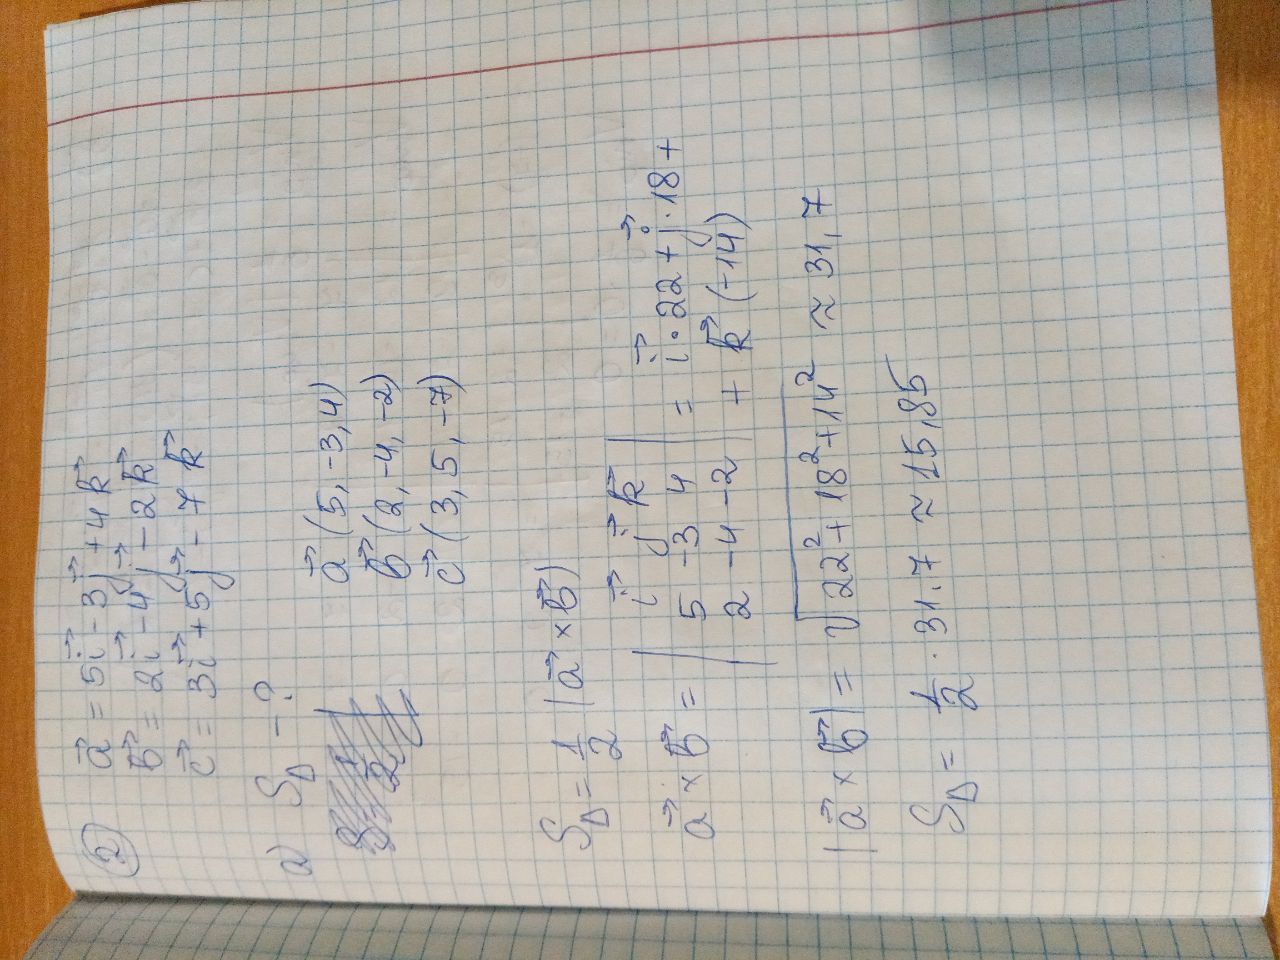 2 a⃗ = 5i⃗ - 3j⃗ + 4k⃗
b⃗ = 2i⃗ - 4j⃗ - 2k⃗
c⃗ = 3i⃗ + 5j⃗ - 7k⃗
а) S_Δ - ?
a⃗ (5, -3, 4)
b⃗ (2, -4, -2)
c⃗ (3, 5, -7)
S_Δ = 1/2 |a⃗ × b⃗|
i⃗ j⃗ k⃗
a⃗ × b⃗ = | 5 -3 4 | = i⃗ · 22 + j⃗ · 18 +
2 -4 -2 + k⃗ (-14)
|a⃗ × b⃗| = √22² + 18² + 14² ≈ 31,7
S_Δ = 1/2 · 31.7 ≈ 15,85